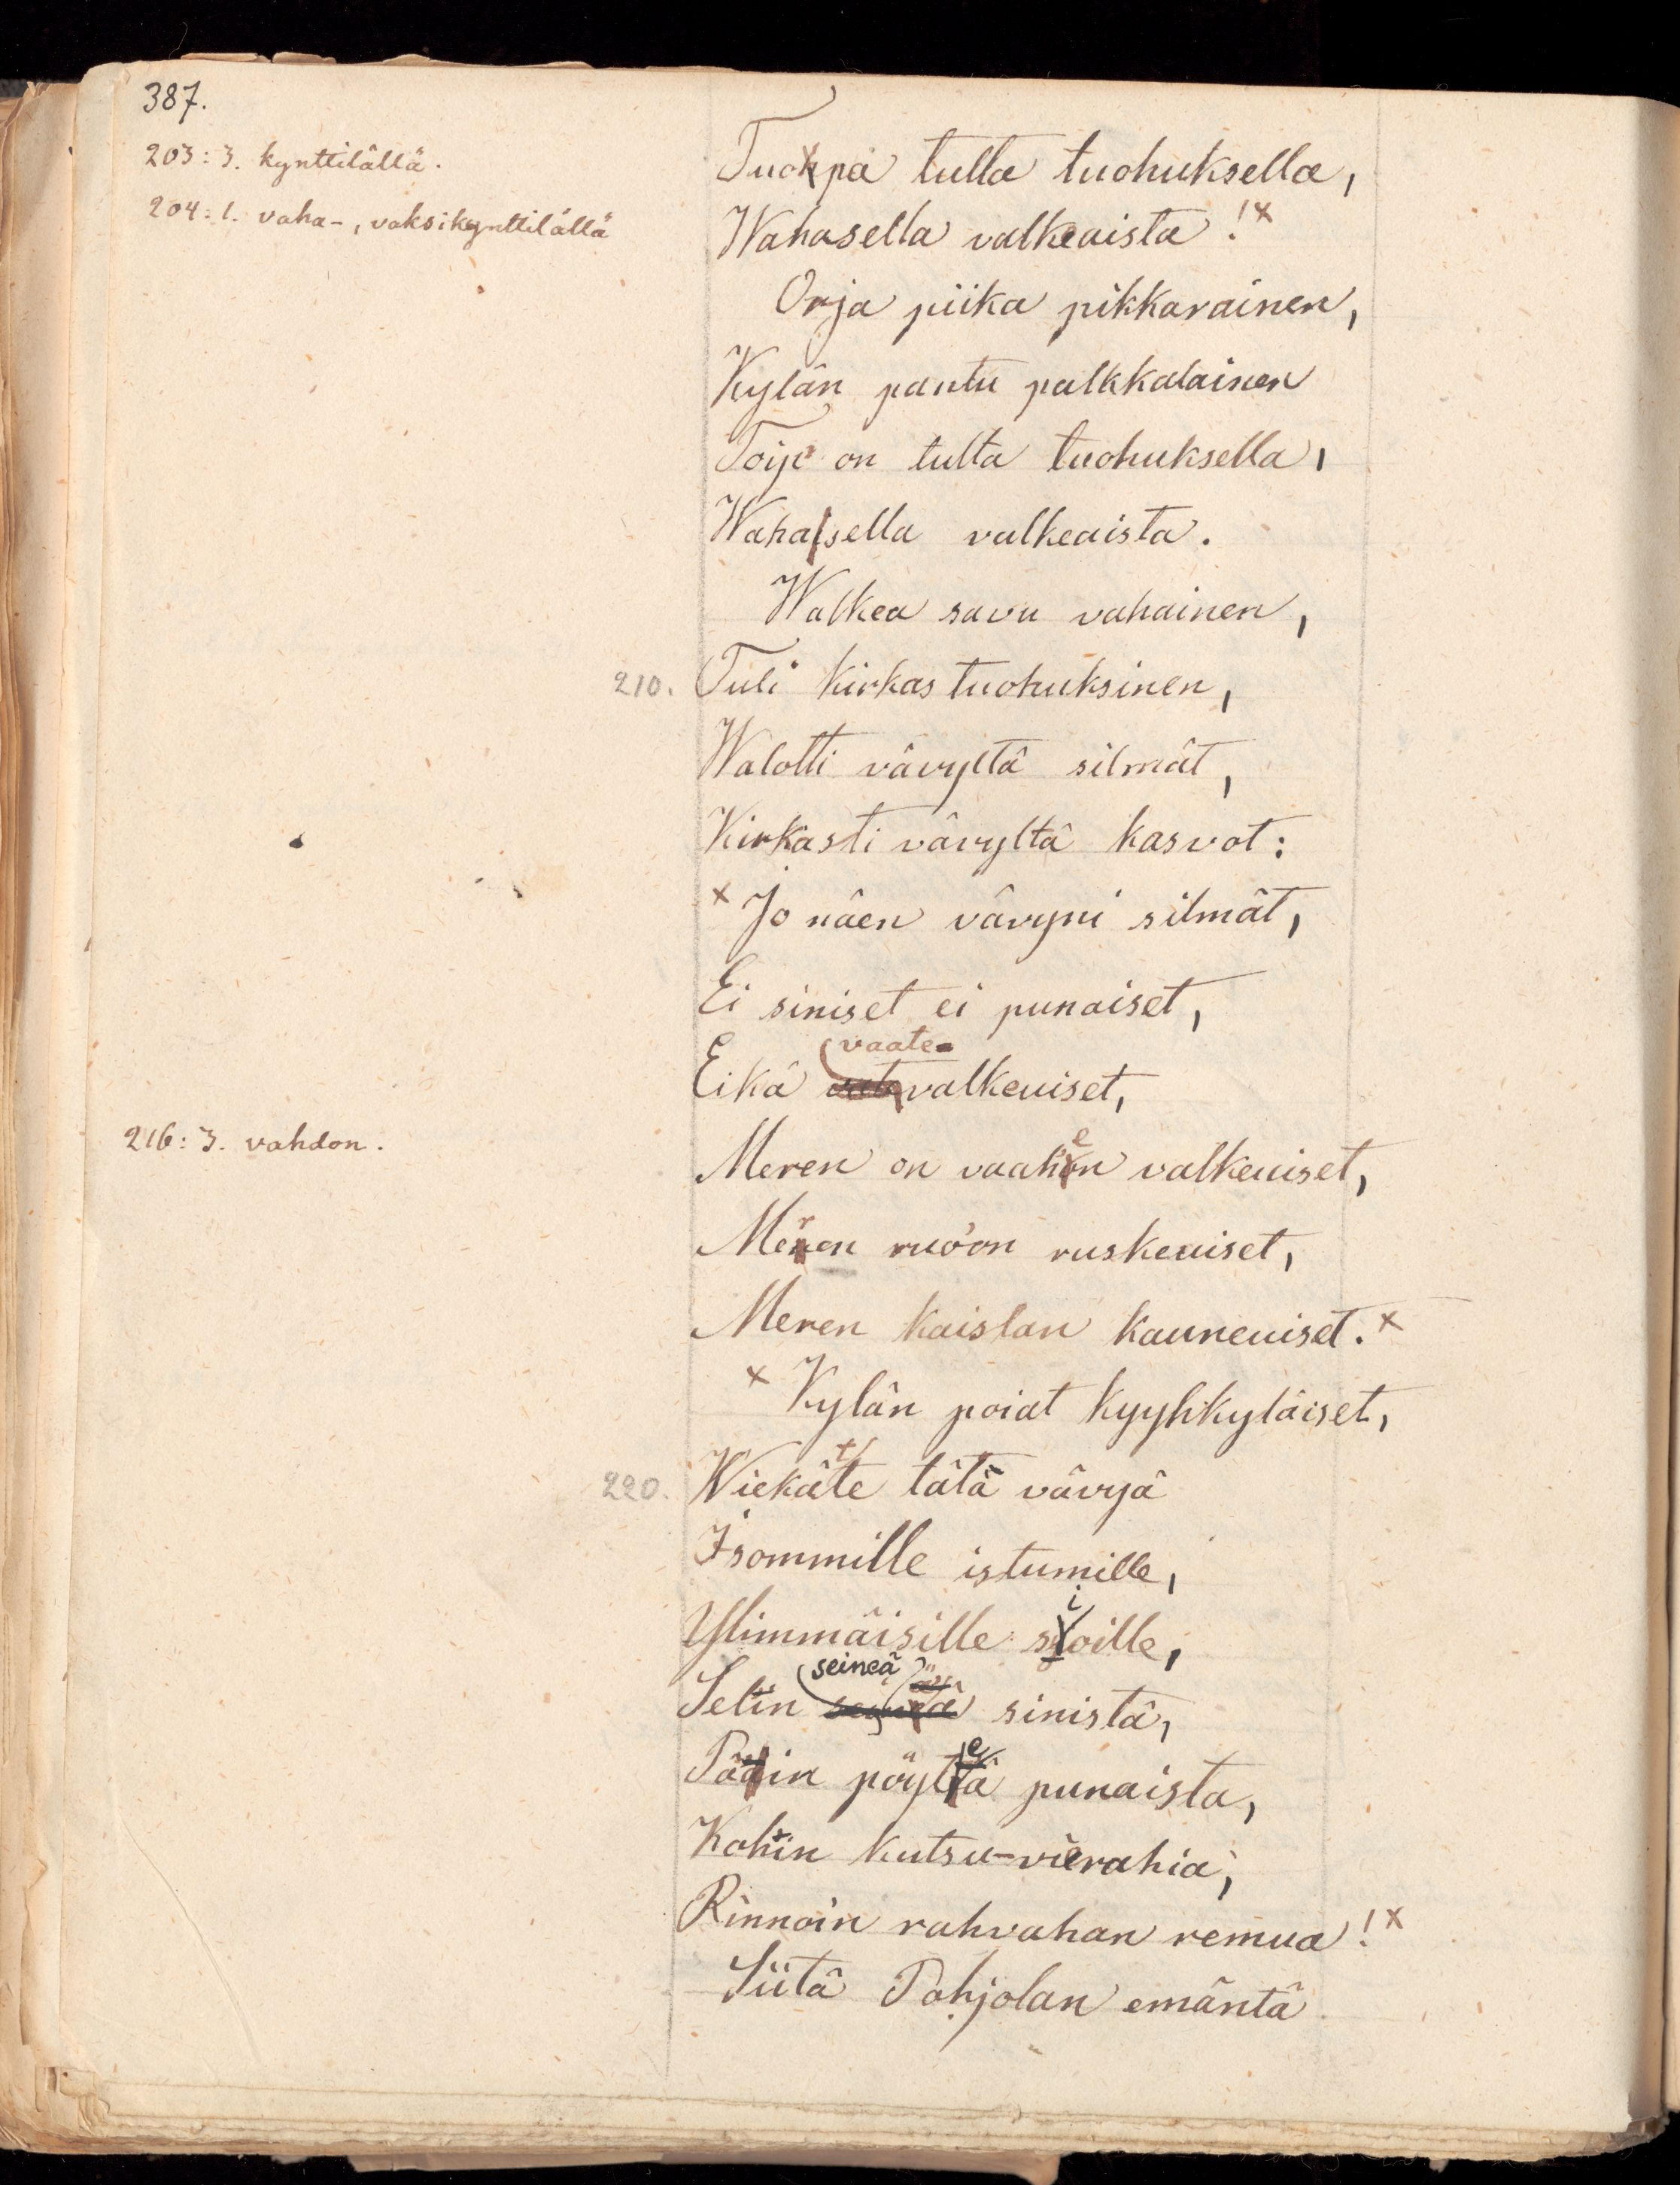 387.
203: 3. kynttilällä.
204: 1. vaha-, vaksikynttilällä
Tuopa tulta tuohuksella,
Wahasella valkeaista!x
Orja piika pikkarainen,
Kylän pantu palkkalainen
Toip on tulta tuohuksella,
Wahasella valkeaista.
Walkea savu vahainen,
210. Tuli kirkas tuohuksinen,
Walotti vävyltä silmät,
Kirkasti vävyltä kasvot:
x Jo näen vävyni silmät,
Ei siniset ei punaiset,
Eikä vaate-valkeuiset,
216: 3. vahdon.
Meren on vaahen valkeuiset,
Meren ruo'on ruskeuiset,
Meren kaislan kauneuiset.x
x Kylän poiat kyyhkyläiset,
220. Wiekätte tätä vävyä
Isommille istumille,
Ylimmäisille sioille,
Selin seineä sinistä,
Päin pöyteä punaista,
Kohin kutsu-vierahia,
Rinnoin rahvahan remua!x
Siitä Pohjolan emäntä